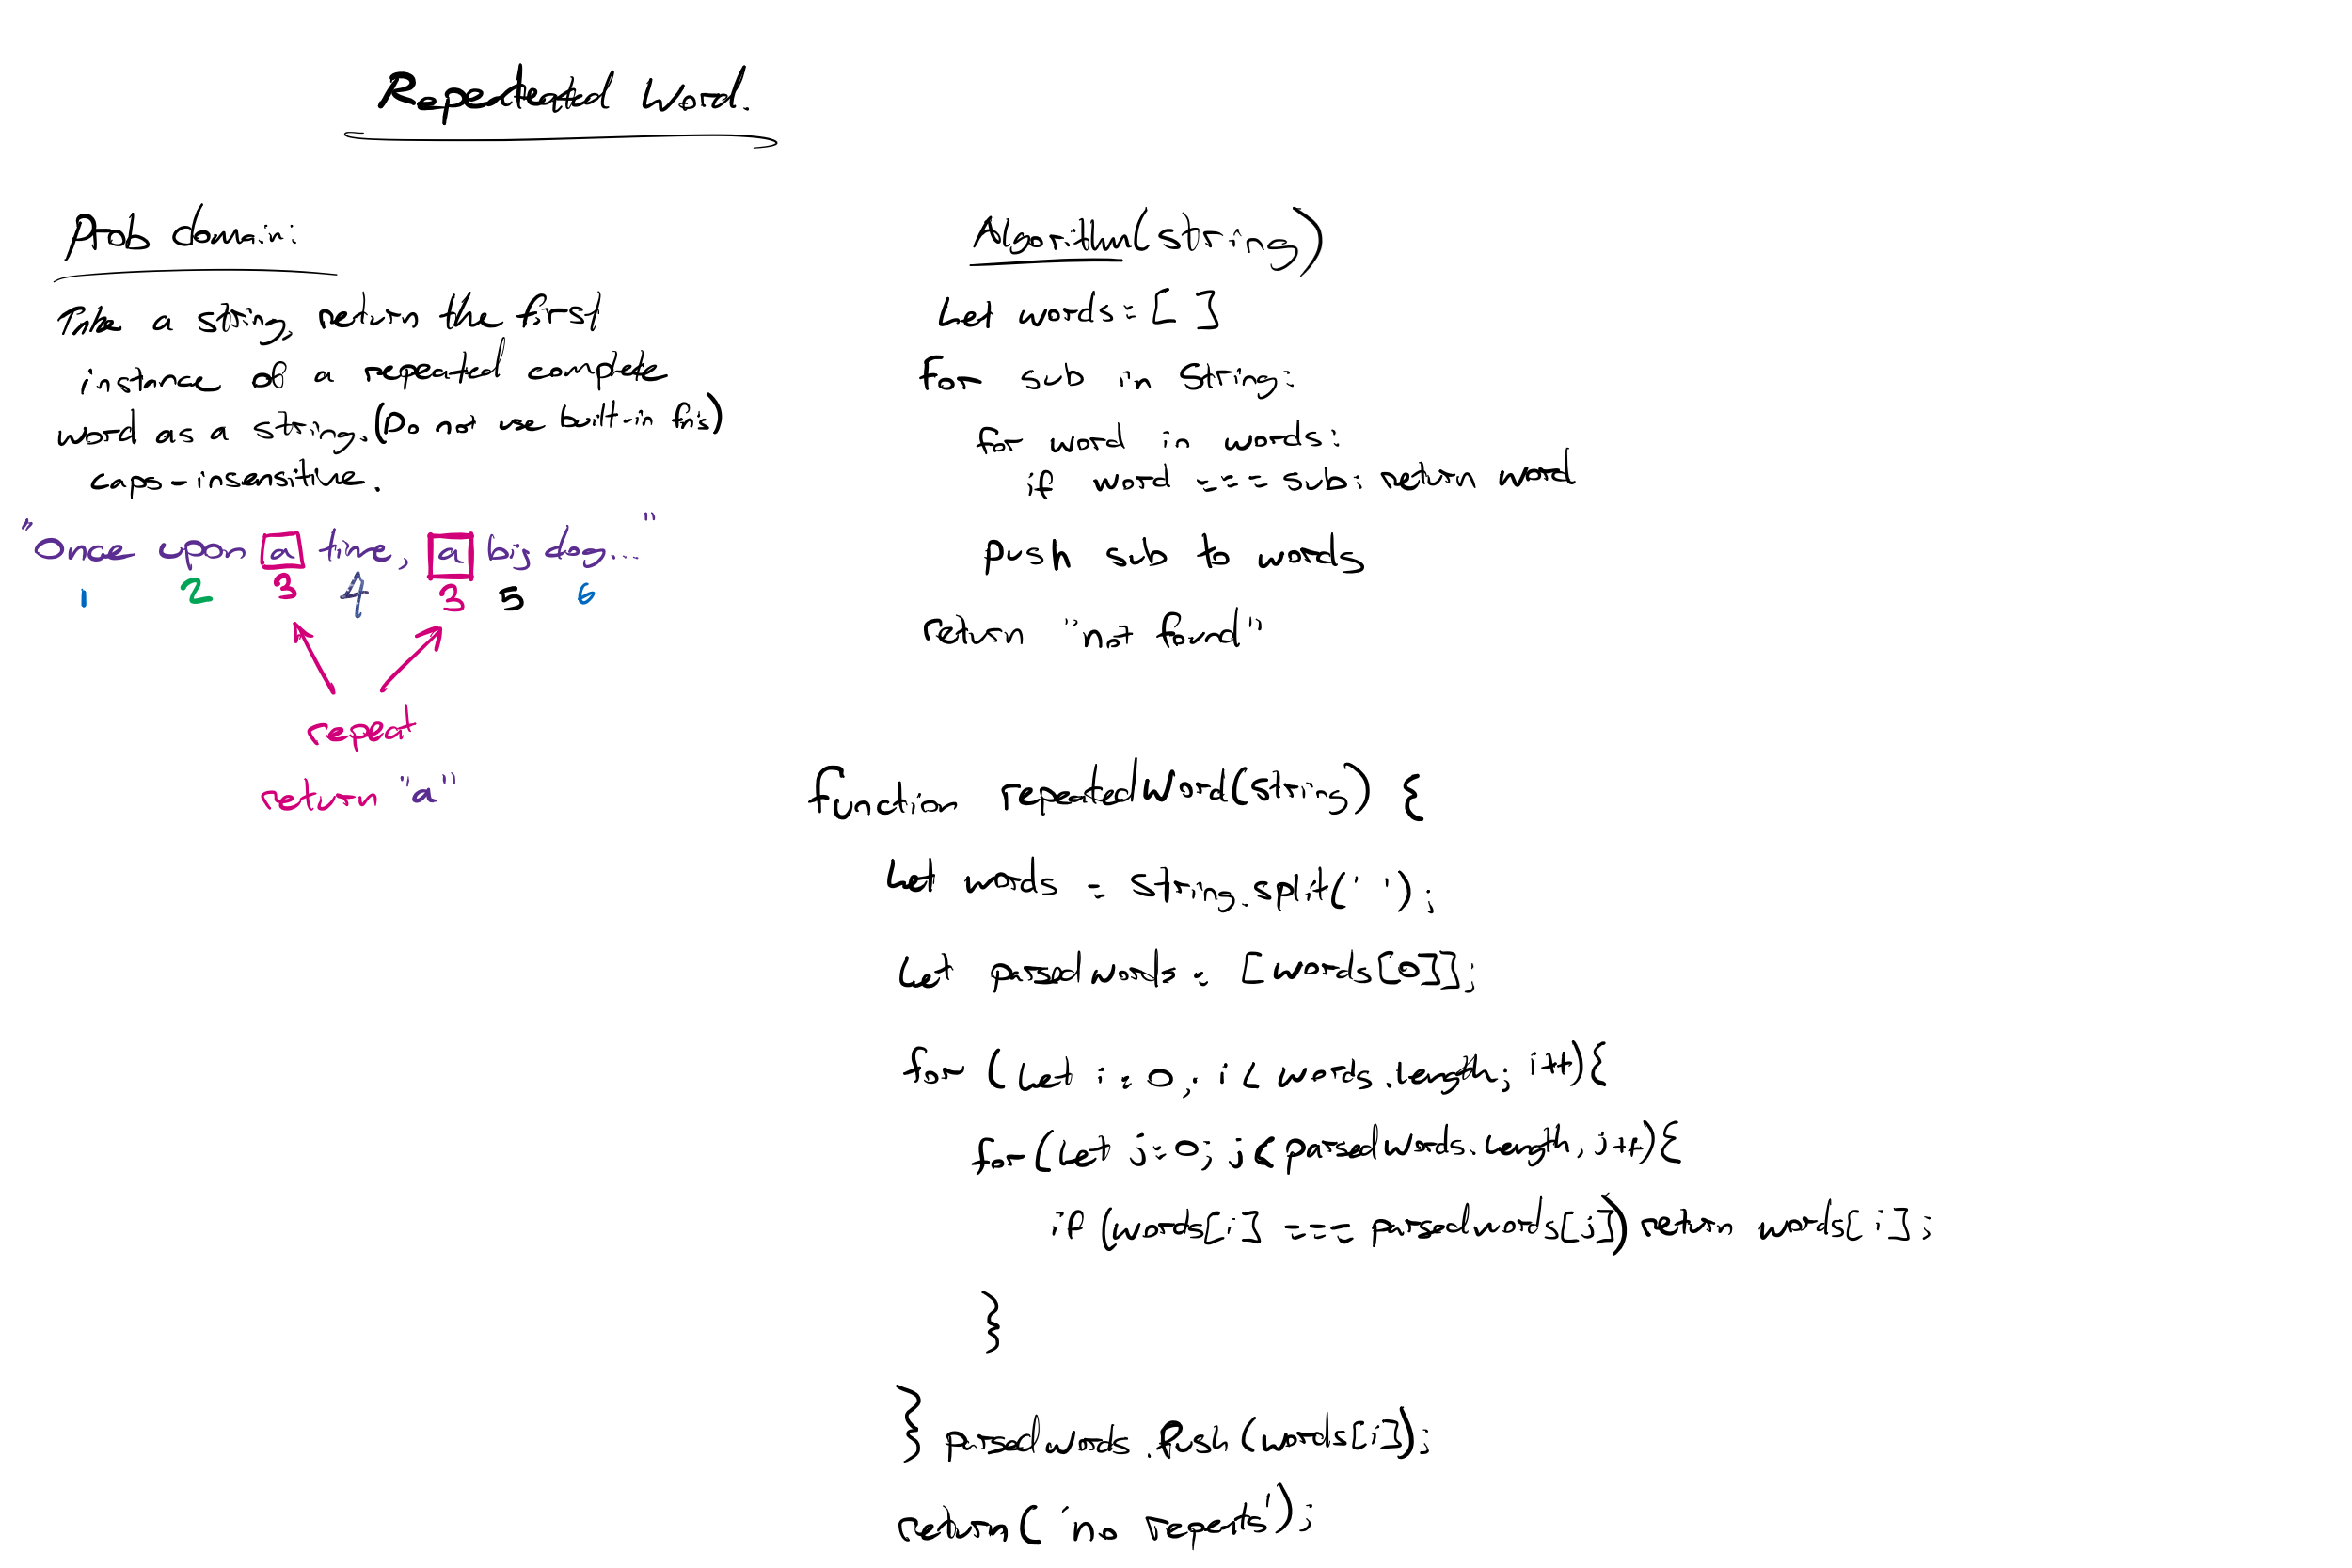 Repeateated Word.
Prob domain:
Take a string, return the first
instance of a repeated complete
word as a string. (Do not use built-in fn's)
caps-insensitive.
"Once upon a time, a big dog..."
1 2 3 4 3 5 6
repeat
return "a"
Algorithm(string)
Let words = [ ]
for sub in string:
for word in words:
if word === sub: return word
push sub to words
return "not found"
function repeatedWord(string) {
Let words = string.split(' ');
Let parsedwords = [words[0]];
for (Let i = 0; i < words.length; i++){
for (Let j = 0; j < parsedWords.length, j++){
if (words[i] === parsedwords[j]) return words[i];
}
} parsedwords.Push(words[i]);
return( 'no repeats');